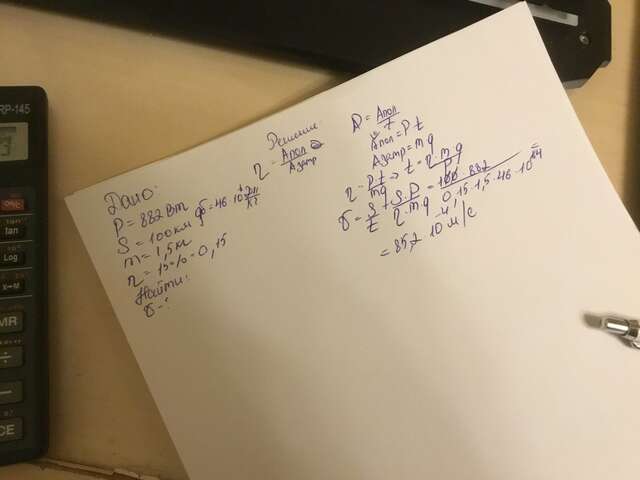 RP-145
tan
Log
X→M
MR
÷
−
CE
Дано:
P = 882 Вт
S = 100 км q = 46·10⁶ Дж/кг
m = 1,5 кг
η = 15% = 0,15
Найти:
υ - ?
Решение:
η = Aпол / Aзатр
P = Aпол / t
Aпол = P t
Aзатр = m q
η = P t / m q ⇒ t = η · m q / P
υ = S / t = S P / η · m q = 100 · 882 / 0,15 · 1,5 · 46 · 10⁴ =
= 85,2 · 10⁻⁴ м/с